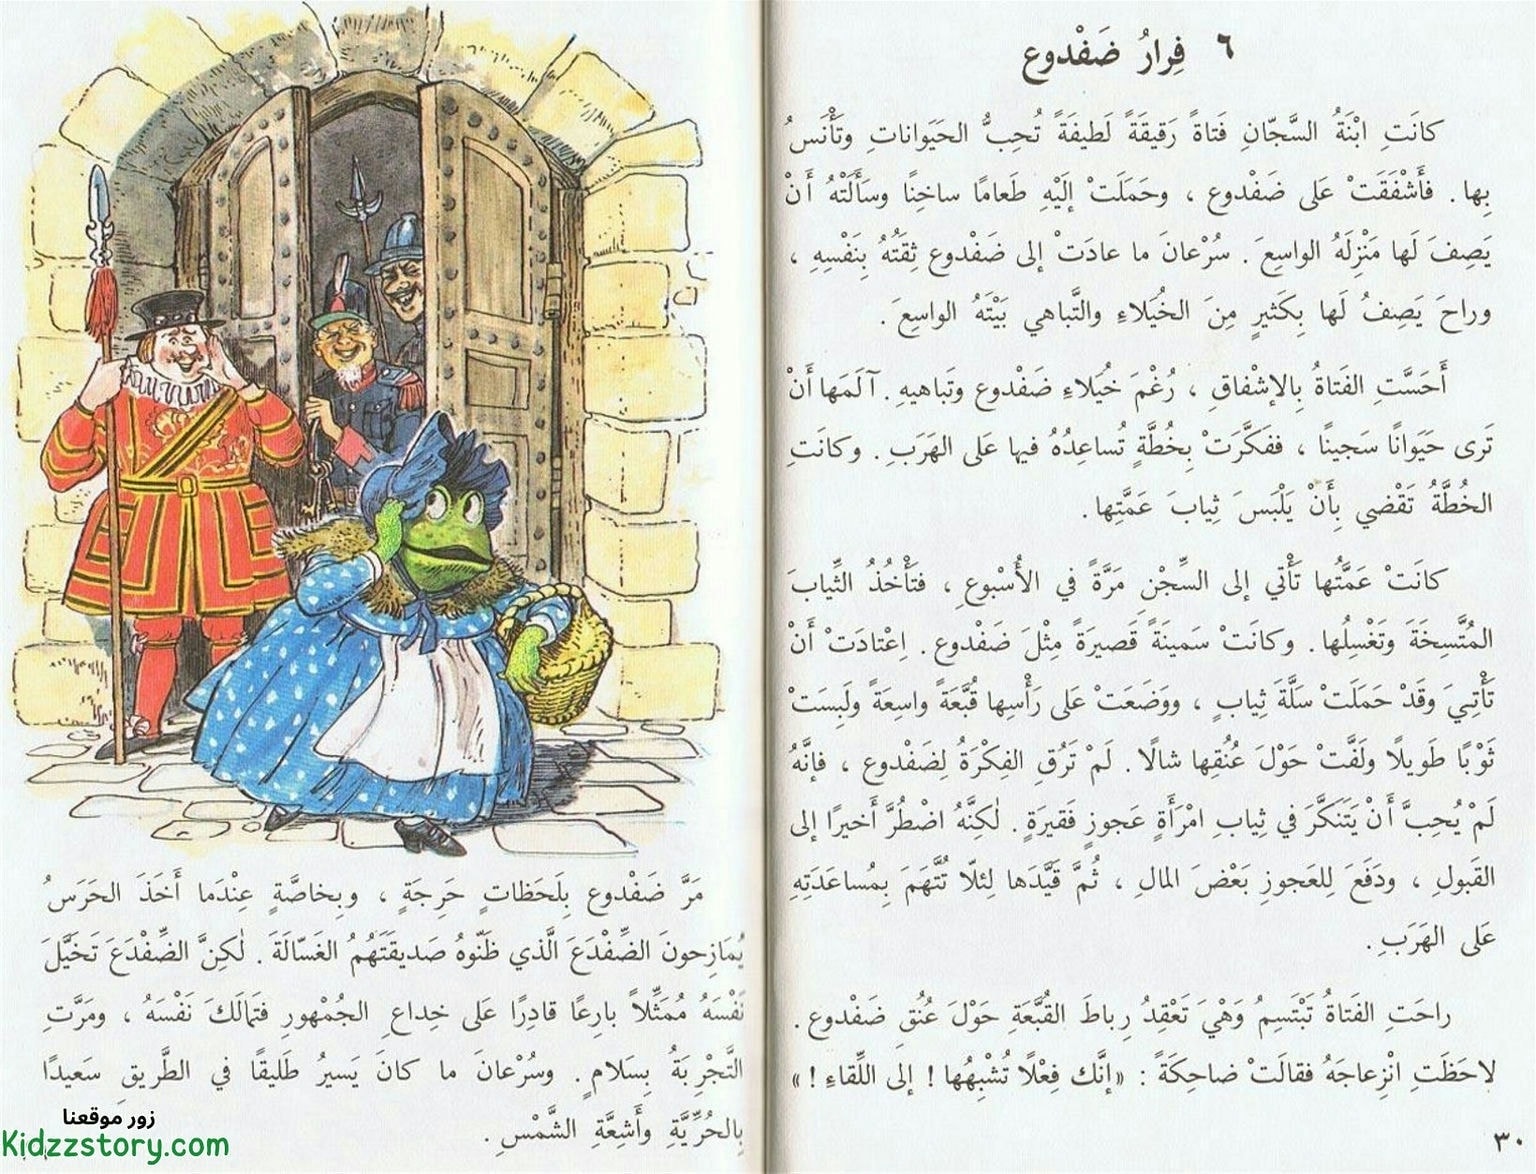 ٦ فِرارُ ضَفْدوع
كانَتِ ابْنَةُ السَّجّانِ فَتاةً رَقيقَةً لَطيفَةً تُحِبُّ الحَيَواناتِ وتَأْنَسُ
بِها. فأَشْفَقَتْ عَلى ضَفْدوع، وحَمَلَتْ إلَيْهِ طَعامًا ساخِنًا وسَأَلَتْهُ أَنْ
يَصِفَ لَها مَنْزِلَهُ الواسِعَ. سُرْعانَ ما عادَتْ إلى ضَفْدوع ثِقَتُهُ بِنَفْسِهِ،
وراحَ يَصِفُ لَها بِكَثيرٍ مِنَ الخُيَلاءِ والتَّباهي بَيْتَهُ الواسِعَ.
أَحَسَّتِ الفَتاةُ بِالإشْفاقِ، رُغْمَ خُيَلاءِ ضَفْدوع وتَباهيهِ. آلَمَها أَنْ
تَرى حَيَوانًا سَجينًا، ففَكَّرَتْ بِخُطَّةٍ تُساعِدُهُ فيها عَلى الهَرَبِ. وكانَتِ
الخُطَّةُ تَقْضي بِأَنْ يَلْبَسَ ثِيابَ عَمَّتِها.
كانَتْ عَمَّتُها تَأْتي إلى السِّجْنِ مَرَّةً في الأُسْبوعِ، فتَأْخُذُ الثِّيابَ
المُتَّسِخَةَ وتَغْسِلُها. وكانَتْ سَمينَةً قَصيرَةً مِثْلَ ضَفْدوع. اِعْتادَتْ أَنْ
تَأْتِيَ وَقَدْ حَمَلَتْ سَلَّةَ ثِيابٍ، ووَضَعَتْ عَلى رَأْسِها قُبَّعَةً واسِعَةً ولَبِسَتْ
ثَوْبًا طَويلًا ولَفَّتْ حَوْلَ عُنُقِها شالًا. لَمْ تَرُقِ الفِكْرَةُ لِضَفْدوع، فإنَّهُ
لَمْ يُحِبَّ أَنْ يَتَنَكَّرَ في ثِيابِ امْرَأَةٍ عَجوزٍ فَقيرَةٍ. لٰكِنَّهُ اضْطُرَّ أَخيرًا إلى
القَبولِ، ودَفَعَ لِلعَجوزِ بَعْضَ المالِ، ثُمَّ قَيَّدَها لِئَلّا تُتَّهَمَ بِمُساعَدَتِهِ
عَلى الهَرَبِ.
راحَتِ الفَتاةُ تَبْتَسِمُ وَهْيَ تَعْقِدُ رِباطَ القُبَّعَةِ حَوْلَ عُنُقِ ضَفْدوع.
لاحَظَتِ انْزِعاجَهُ فقالَتْ ضاحِكَةً: «إنَّكَ فِعْلًا تُشْبِهُها! إلى اللِّقاءِ!»
٣٠
مَرَّ ضَفْدوع بِلَحَظاتٍ حَرِجَةٍ، وبِخاصَّةٍ عِنْدَما أَخَذَ الحَرَسُ
يُمازِحونَ الضِّفْدَعَ الَّذي ظَنّوهُ صَديقَتَهُمُ الغَسّالَةَ. لٰكِنَّ الضِّفْدَعَ تَخَيَّلَ
نَفْسَهُ مُمَثِّلاً بارِعًا قادِرًا عَلى خِداعِ الجُمْهورِ فَتَمالَكَ نَفْسَهُ، ومَرَّتِ
التَّجْرِبَةُ بِسَلامٍ. وسُرْعانَ ما كانَ يَسيرُ طَليقًا في الطَّريقِ سَعيدًا
بِالحُرِّيَّةِ وأَشِعَّةِ الشَّمْسِ.
زور موقعنا
Kidzzstory.com